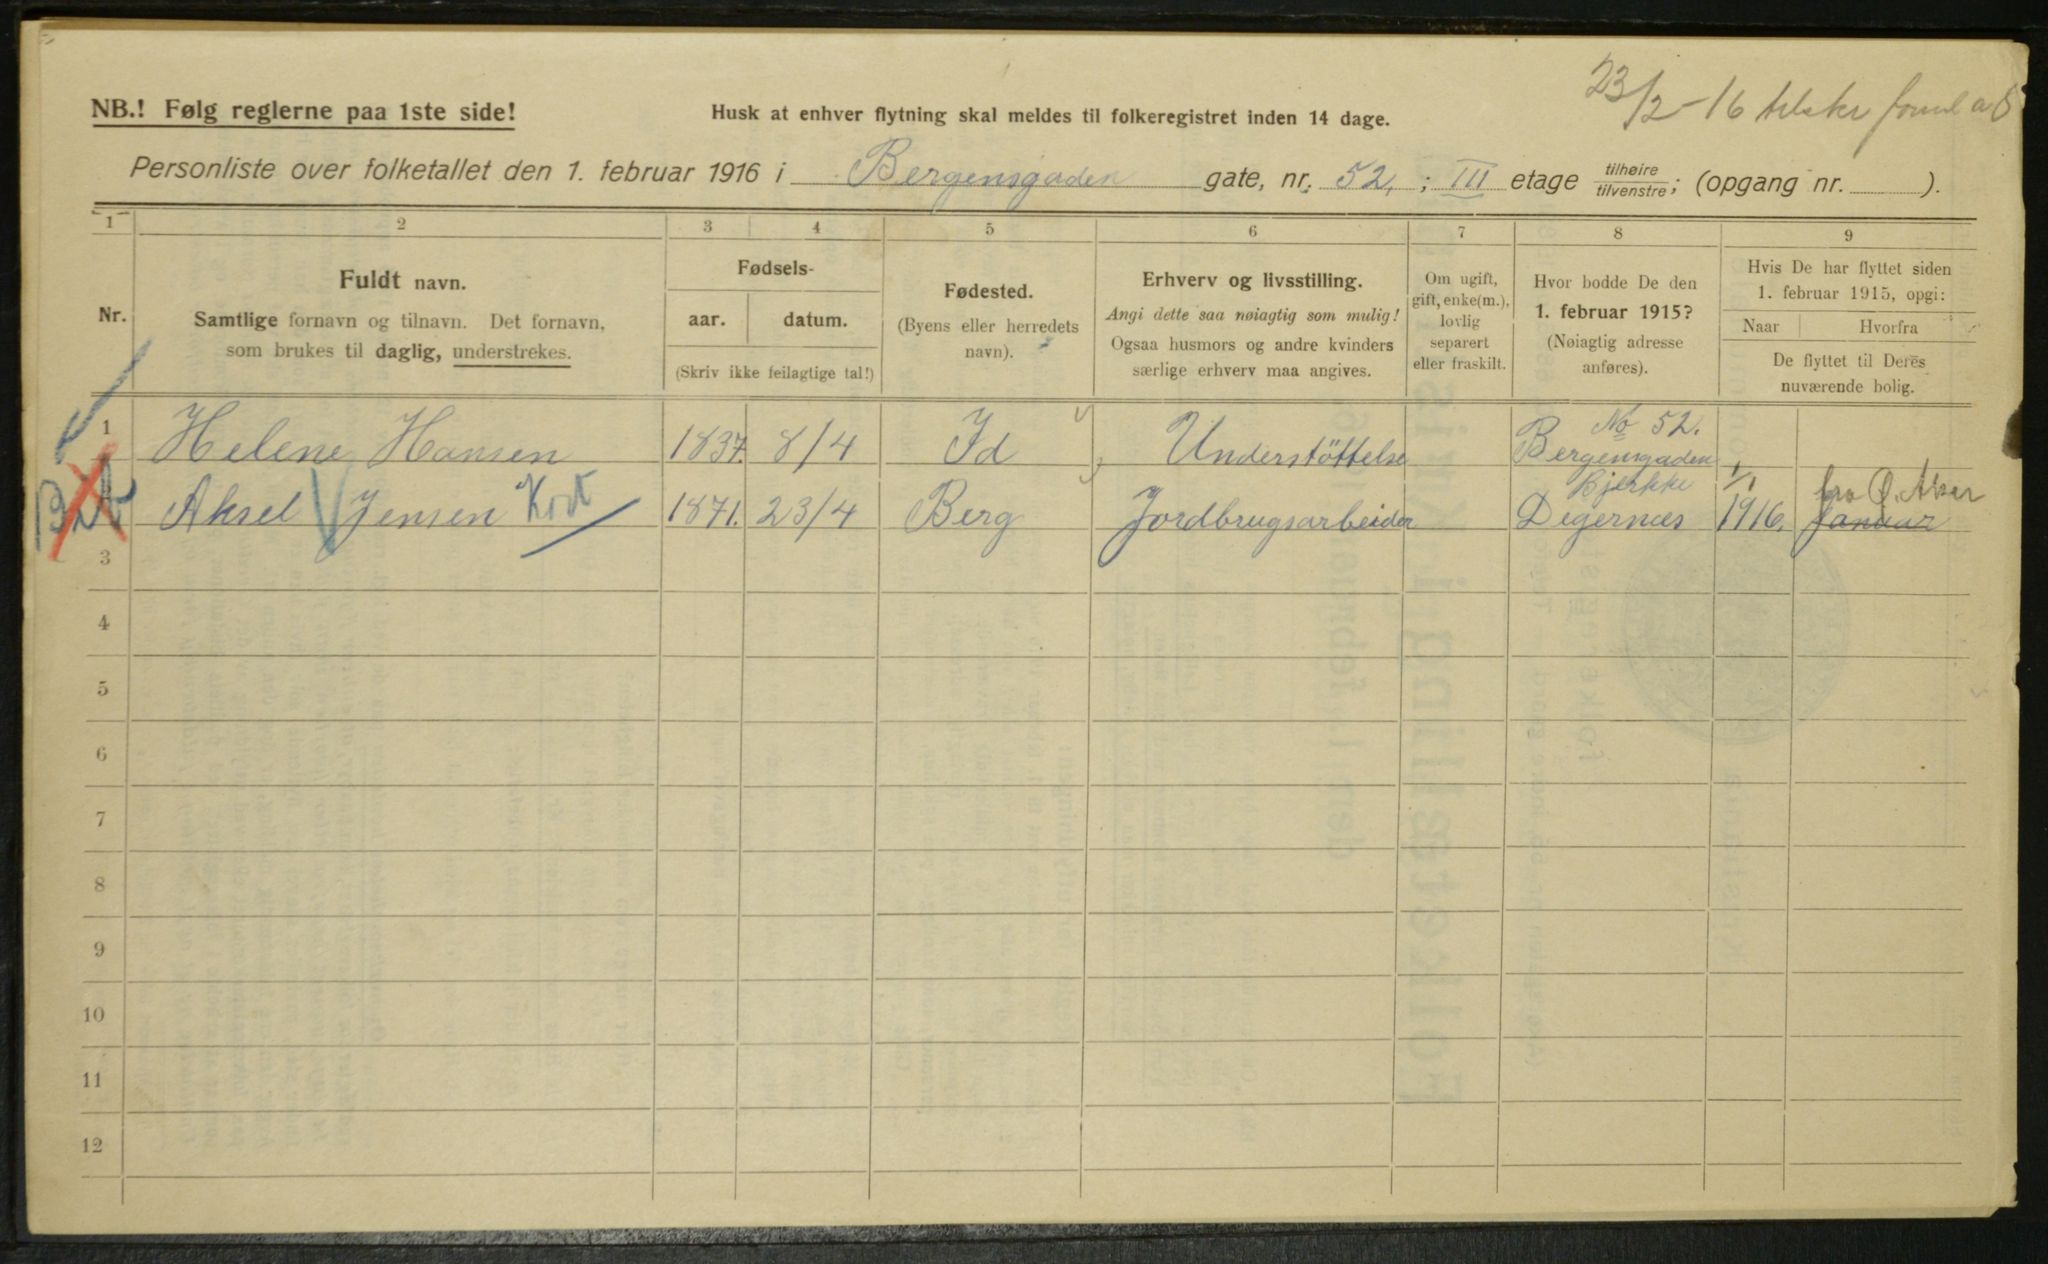 23/2-16 tilskr
NB.! Følg reglerne paa 1ste side!
Husk at enhver flytning skal meldes til folkeregistret inden 14 dage.
Personliste over folketallet den 1. februar 1916 i Bergensgaden gate, nr. 52. ; III etage tilhøire tilvenstre; (opgang nr. ).
1 2 3 4 5 6 7 8 9
Nr.
Fuldt navn.
Samtlige fornavn og tilnavn. Det fornavn,
som brukes til daglig, understrekes.
Fødsels-
aar. datum.
(Skriv ikke feilagtige tal!)
Fødested.
(Byens eller herredets
navn).
Erhverv og livsstilling.
Angi dette saa nøiagtig som mulig!
Ogsaa husmors og andre kvinders
særlige erhverv maa angives.
Om ugift,
gift, enke(m.),
lovlig
separert
eller fraskilt.
Hvor bodde De den
1. februar 1915?
(Nøiagtig adresse
anføres).
Hvis De har flyttet siden
1. februar 1915, opgi:
Naar Hvorfra
De flyttet til Deres
nuværende bolig.
No 52.
1 Helene Hansen 1837. 8/4 Id Understöttelse Bergensgaden
Bjerkke 1/1 fra Ø. Aker
2 Aksel Jensen Kort 1871. 23/4 Berg Jordbrugsarbeider Degernæs 1916. Januar
3
4
5
6
7
8
9
10
11
12